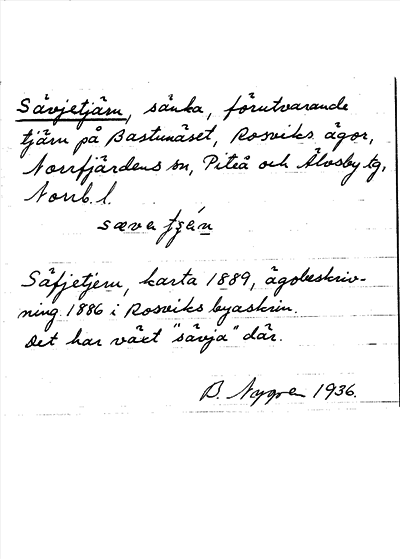 Sävjetjärn, sänka, förutvarande
tjärn på Bastunäset, Rosviks ägor,
Norrfjärdens sn, Piteå och Älvsby tg,
Norrb. l.
Säfjetjern, karta 1889, ägobeskriv-
ning 1886 i Rosviks byaskrin.
Det har växt "sävja" där.
B. Nygren 1936.